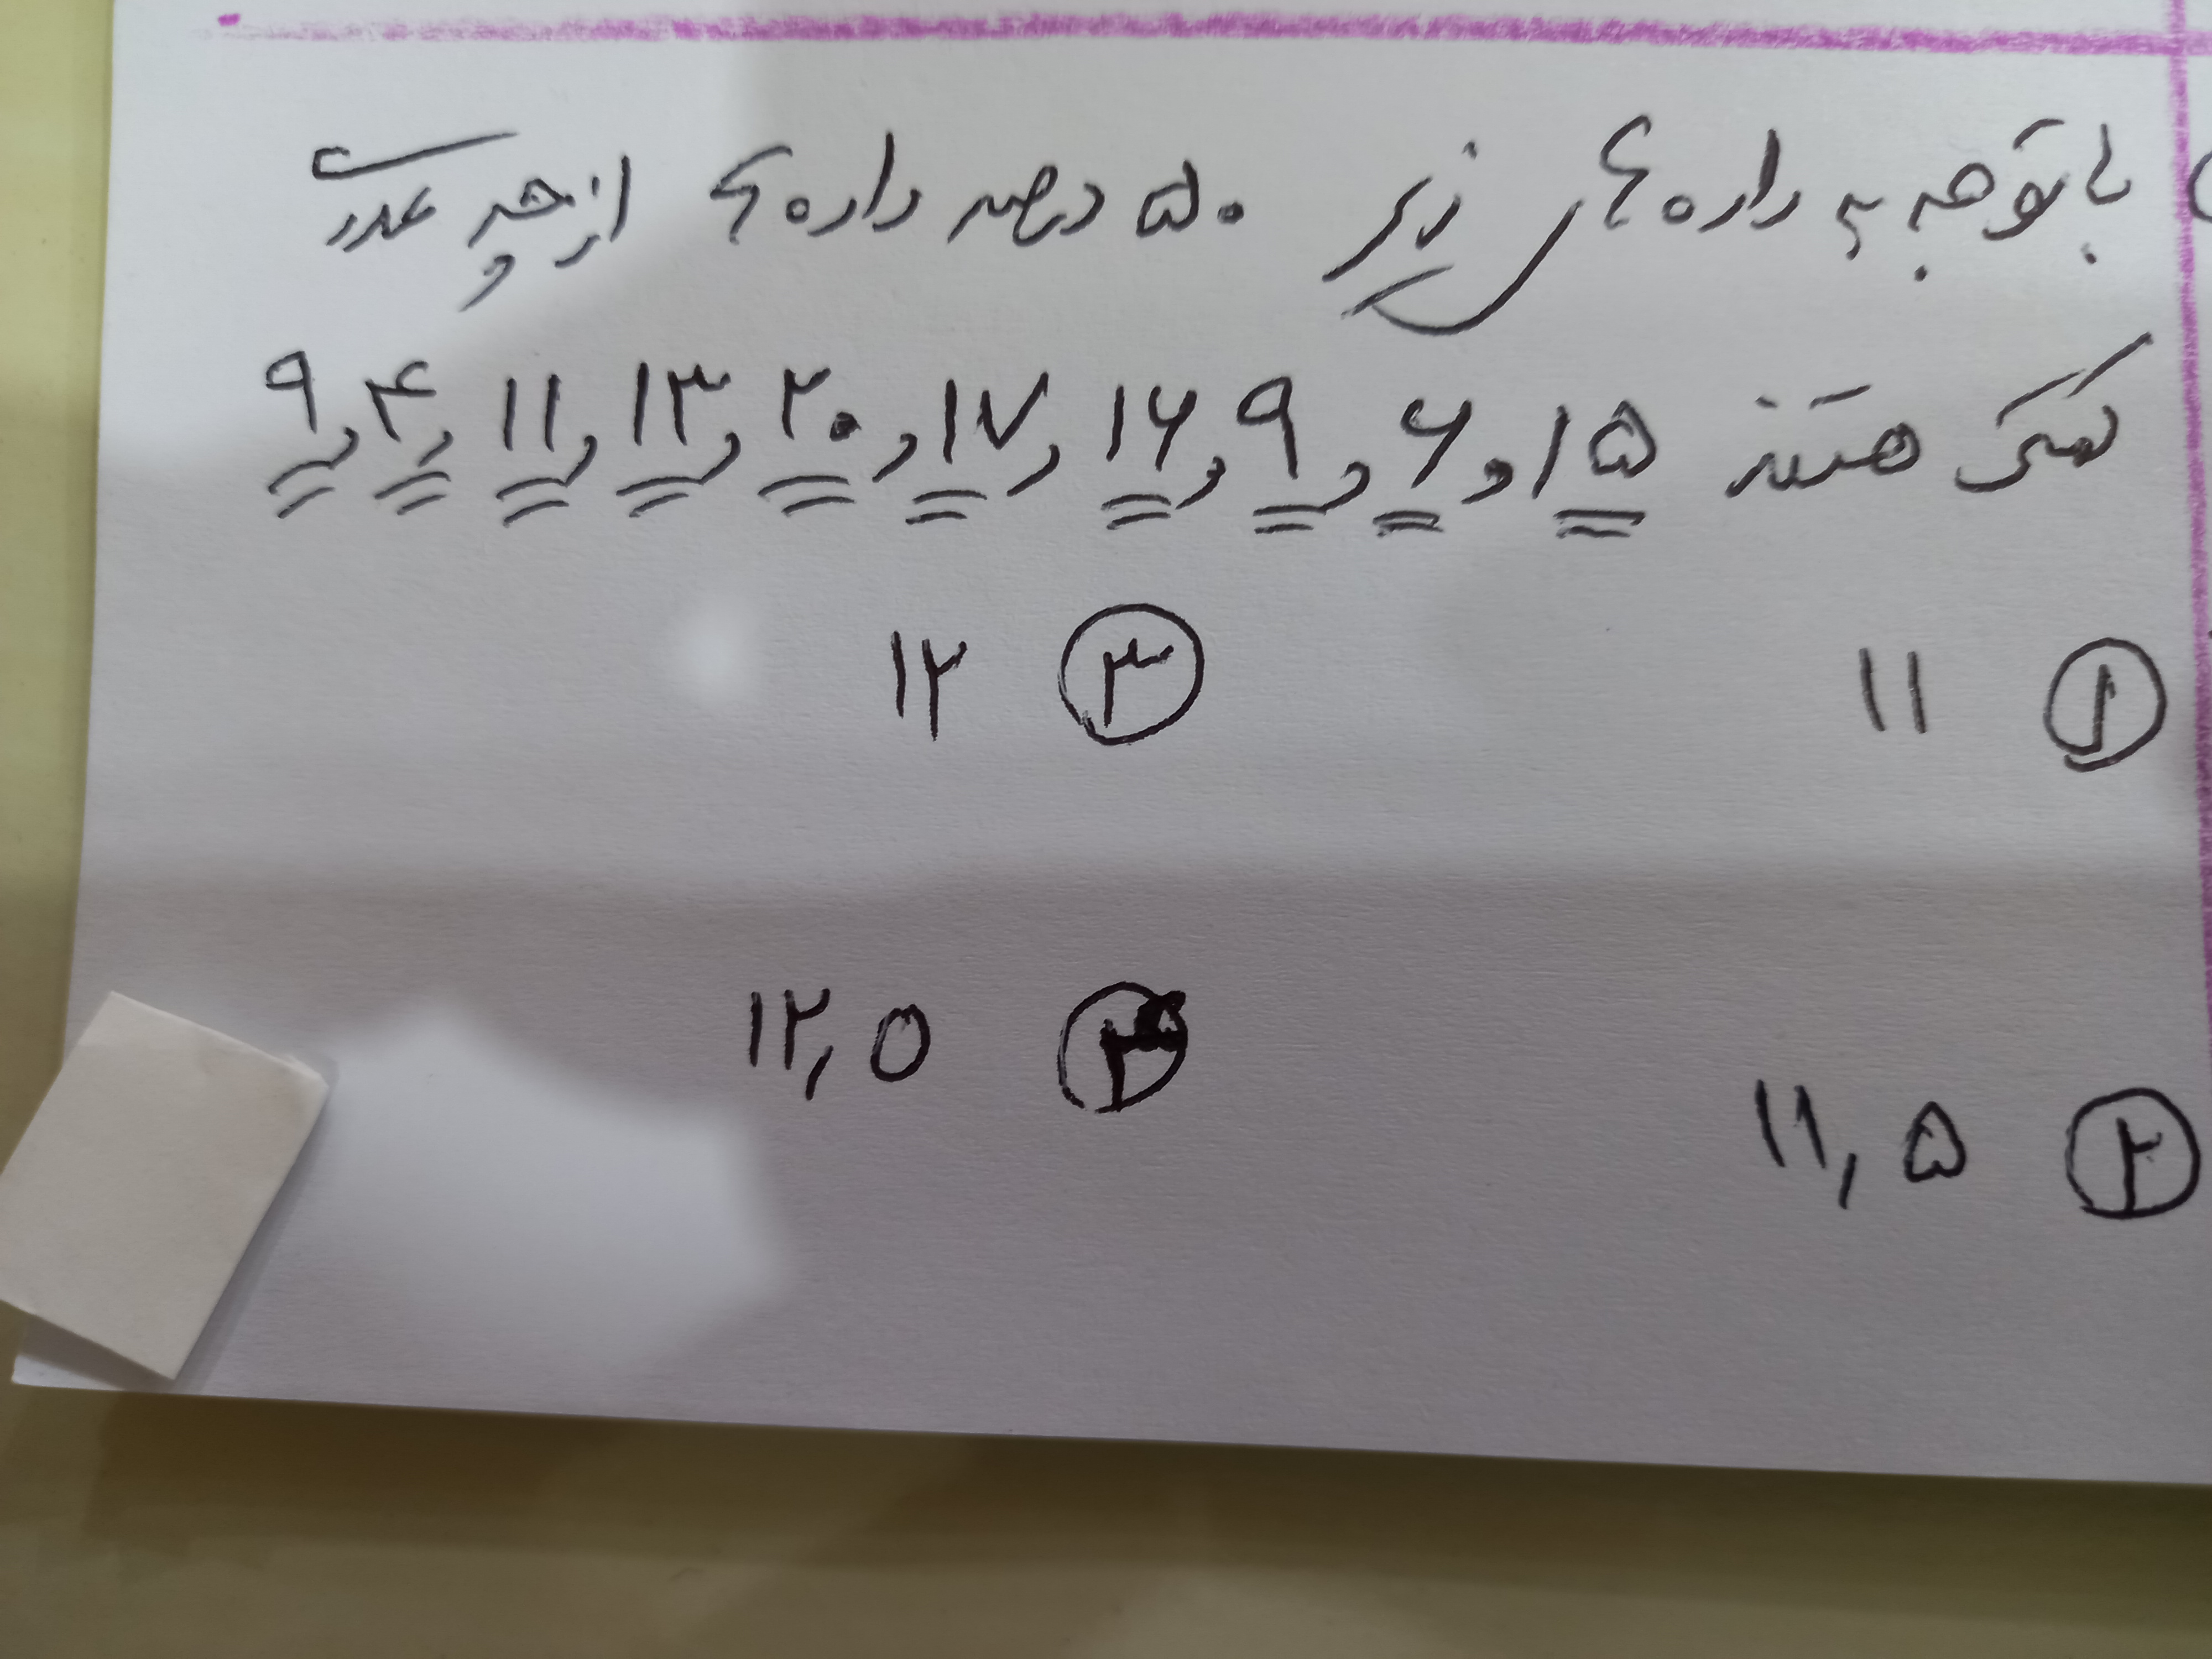 با توجه به داده های زیر ۵۰ درصد داده ها از چه عددی
کمی هستند ۱۵ , ۶ , ۹ , ۱۶ , ۱۷ , ۲۰ , ۱۳ , ۱۱ , ۴ , ۹
① ۱۱ ③ ۱۲
② ۱۱,۵ ④ ۱۲,۵